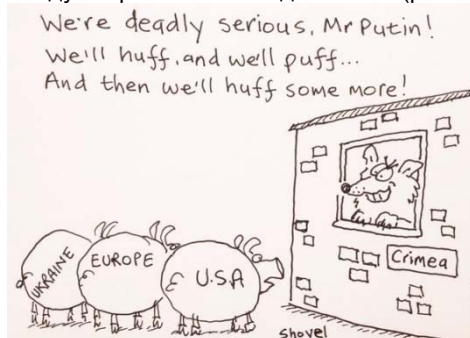 We're deadly serious, Mr Putin!
We'll huff, and we'll puff...
And then we'll huff some more!
UKRAINE
EUROPE
U.S.A
Crimea
Shovel